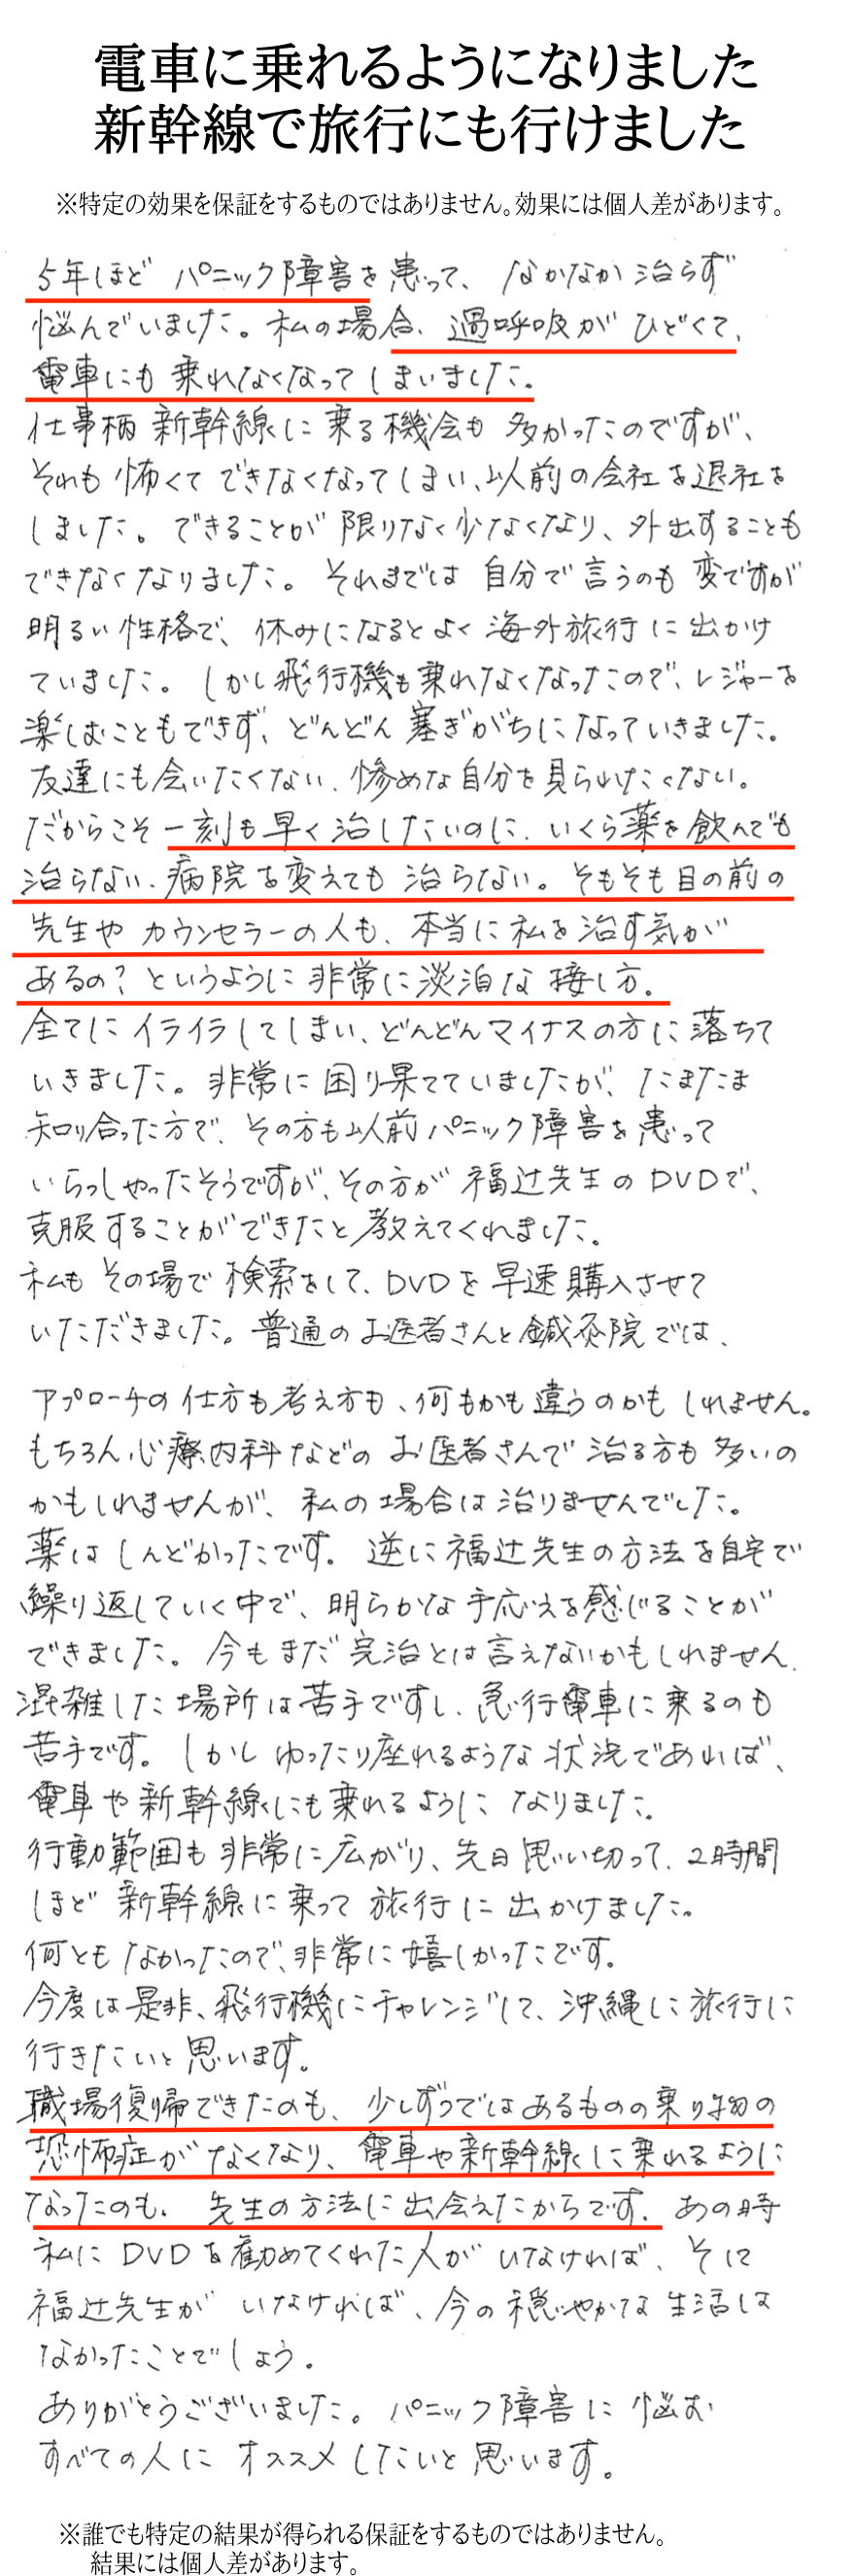 電車に乗れるようになりました
新幹線で旅行にも行けました
※特定の効果を保証をするものではありません。効果には個人差があります。
5年ほど パニック障害を患って、なかなか治らず
悩んでいました。私の場合、過呼吸が ひどくて、
電車にも 乗れなくなってしまいました。
仕事柄 新幹線に 乗る機会も 多かったのですが、
それも怖くて できなくなってしまい、以前の会社を退社を
しました。できることが 限りなく少なくなり、外出することも
できなくなりました。それまでは 自分で言うのも 変ですが
明るい性格で、休みになるとよく 海外旅行に出かけ
ていました。しかし飛行機も乗れなくなったので、レジャーを
楽しむこともできず、どんどん 塞ぎがちになっていきました。
友達にも会いたくない、惨めな自分を見られたくない。
だからこそ一刻も早く治したいのに、いくら薬を飲んでも
治らない、病院を変えても 治らない。そもそも目の前の
先生や カウンセラーの人も、本当に私を治す気が
あるの?というように 非常に淡泊な 接し方。
全てに イライラしてしまい、どんどんマイナスの方に落ちて
いきました。非常に困り果てていましたが、たまたま
知り合った方で、その方も以前パニック障害を患って
いらっしゃったそうですが、その方が 福辻先生のDVDで、
克服することができたと教えてくれました。
私も その場で検索をして、DVDを早速購入させて
いただきました。普通のお医者さんと鍼灸院では、
アプローチの仕方も考え方も、何もかも違うのかもしれません。
もちろん心療内科などの お医者さんで治る方も多いの
かもしれませんが、私の場合は治りませんでした。
薬はしんどかったです。逆に福辻先生の方法を自宅で
繰り返していく中で、明らかな手応えを感じることが
できました。今もまだ完治とは言えないかもしれません。
混雑した場所は苦手ですし、急行電車に乗るのも
苦手です。しかし ゆったり座れるような状況であれば、
電車や新幹線にも乗れるように なりました。
行動範囲も非常に広がり、先日思い切って、2時間
ほど 新幹線に乗って 旅行に出かけました。
何とも なかったので、非常に嬉しかったです。
今度は是非、飛行機にチャレンジして、沖縄に旅行に
行きたいと思います。
職場復帰できたのも、少しずつではあるものの乗り物の
恐怖症が なくなり、電車や新幹線に乗れるように
なったのも、先生の方法に出会えたからです。あの時
私にDVDを勧めてくれた人が いなければ、そして
福辻先生が いなければ、今の穏やかな 生活は
なかったことでしょう。
ありがとうございました。パニック障害に 悩む
すべての人に オススメしたいと思います。
※誰でも特定の結果が得られる保証をするものではありません。
結果には個人差があります。